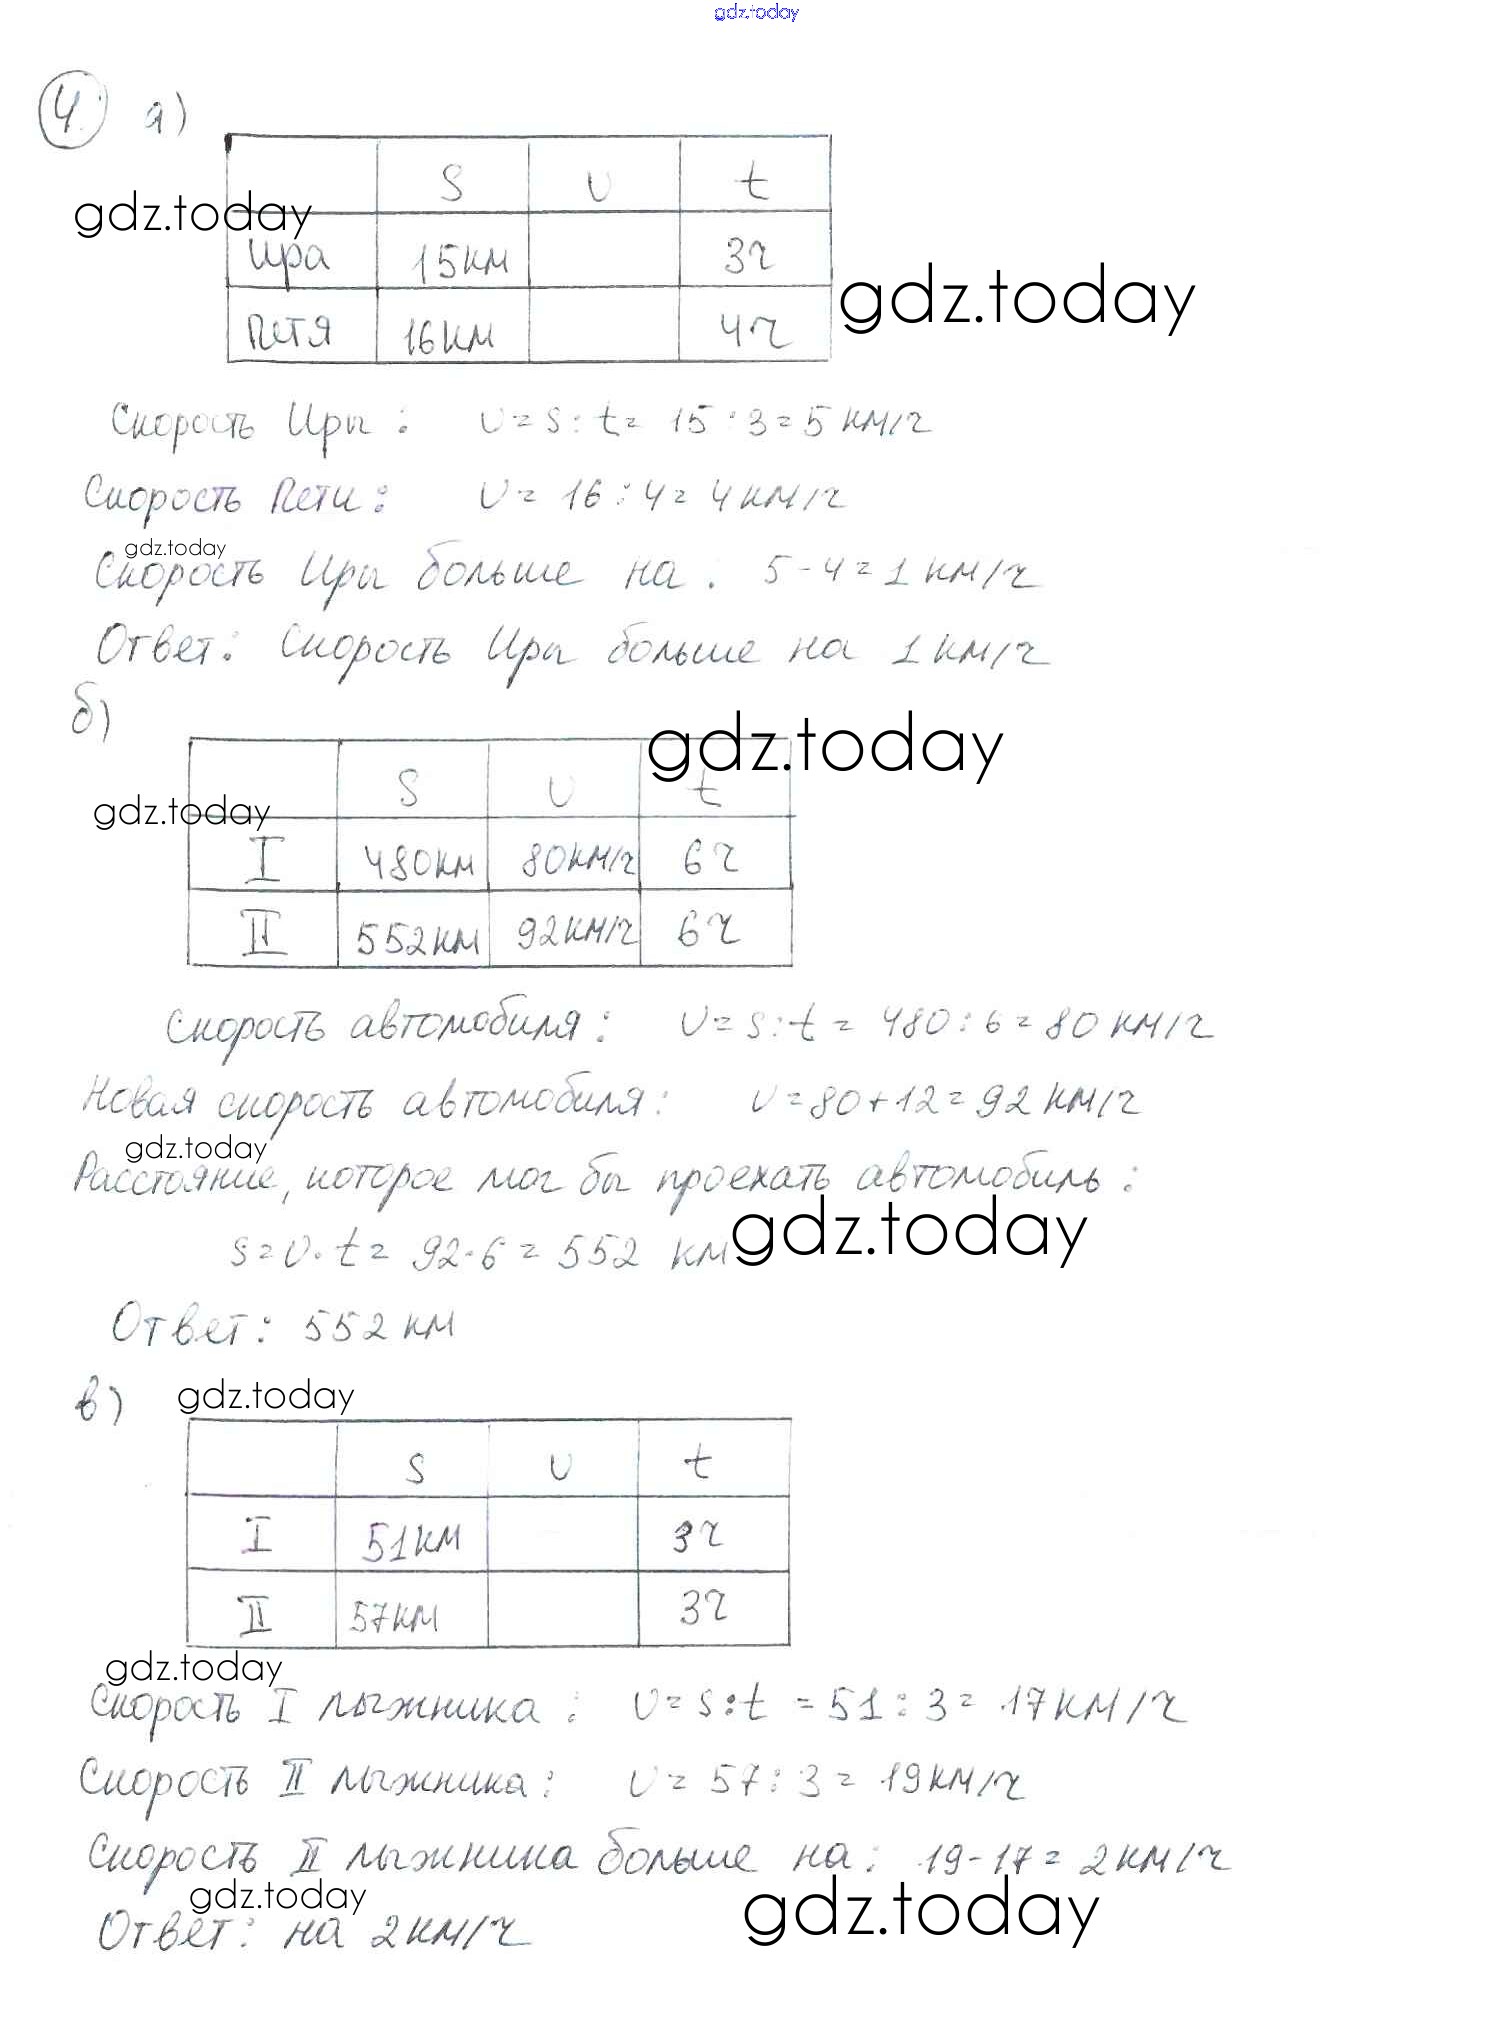 gdz.today
4. а)
S υ t
gdz.today
Ира 15км 3ч
gdz.today
Петя 16км 4ч
Скорость Иры: υ = s : t = 15 : 3 = 5 км/ч
Скорость Пети: υ = 16 : 4 = 4 км/ч
gdz.today
Скорость Иры больше на: 5 - 4 = 1 км/ч
Ответ: Скорость Иры больше на 1 км/ч
б)
gdz.today
S υ t
gdz.today
I 480км 80км/ч 6ч
II 552км 92км/ч 6ч
Скорость автомобиля: υ = s : t = 480 : 6 = 80 км/ч
Новая скорость автомобиля: υ = 80 + 12 = 92 км/ч
gdz.today
Расстояние, которое мог бы проехать автомобиль:
gdz.today
s = υ · t = 92 · 6 = 552 км
Ответ: 552 км
в)
gdz.today
S υ t
I 51км 3ч
II 57км 3ч
gdz.today
Скорость I лыжника: υ = s : t = 51 : 3 = 17 км/ч
Скорость II лыжника: υ = 57 : 3 = 19 км/ч
Скорость II лыжника больше на: 19 - 17 = 2 км/ч
gdz.today
gdz.today
Ответ: на 2 км/ч